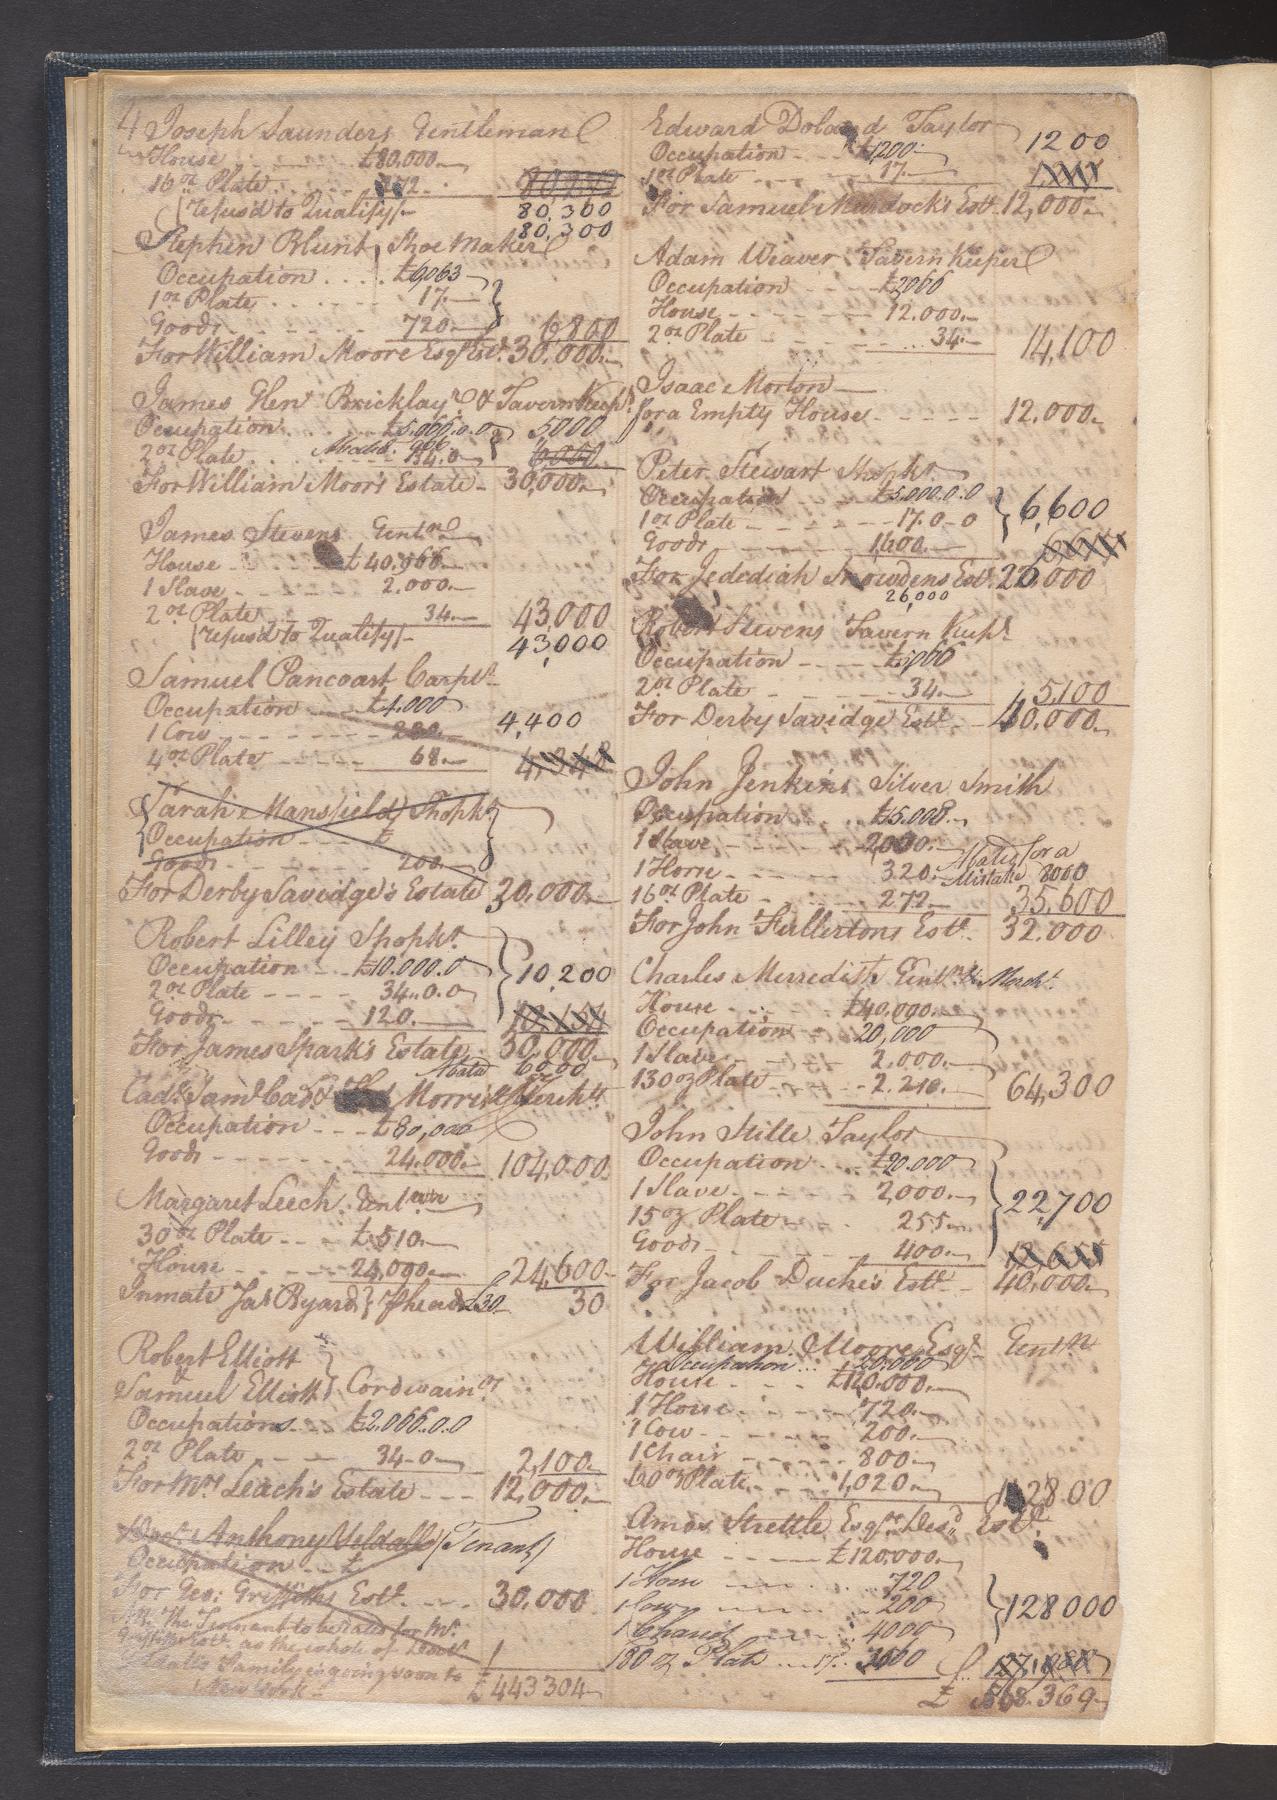 4 Joseph Saunders Gentleman
House £80,000.
16 oz Plate 272.
(refus'd to Qualify/- 80,300
80,300
Stephen Blunt Shoe Maker
Occupation £6,063
1 oz Plate 17.
Goods 720. 6,800
For William Moore Esqr Est. 30,000.
James Glen Bricklayr & Tavern Keepr
Occupation £5,066.0.0 5000
2 oz Plate 34.0
For William Moor's Estate 30,000.
James Stevens Gentn
House £40,966
1 Slave 2.000.
2 oz Plate 34. 43,000
(refus'd to Qualify/- 43,000
Samuel Pancoast Carptr
Occupation £4.000
1 Cow 280. 4,400
4 oz Plate 68.
Sarah Mansfield Shopkr
Occupation £
Goods 200.
For Derby Savidge's Estate 30,000.
Robert Lilley Shopkr
Occupation £10.000.0
2 oz Plate 34..0.0 10,200
Goods 120.
For James Spark's Estate 30,000.
Abate 6000
Cadr & Saml Cadr & Morris Merchts
Occupation £80,000
Goods 24.000. 104,000.
Margaret Leech Gent
30 oz Plate £510.
House 24,000. 24,600
Inmate Jas Byard} P head £30. 30
Robert Elliott
Samuel Elliott} Cordwainrs
Occupations £2.066.0.0
2 oz Plate 34-0 2,100.
For Mrs Leach's Estate 12,000.
Anthony Yeldall (Tenant)
Occupation £
For Geo: Griffiths Estt 30,000
The Tennant to be rated for Mr
Griffiths Estt as the whole of
Family is going soon to
New York
£443304
Edward Doland Taylor
Occupation £1200 1200
1 oz Plate 17.
For Samuel Murdock's Estt 12,000.
Adam Weaver Tavern Keeper
Occupation £2066
House 12.000.
2 oz Plate 34. 14,100
Isaac Morton
for a Empty House 12.000.
Peter Stewart Shopkr
Occupation £5,000.0.0
1 oz Plate 17.0-0 6,600
Goods 1600.
For Jedediah Snowdens Est. 26,000
26,000
Robert Stevens Tavern Keepr
Occupation
2 oz Plate 34. 5,100
For Derby Savidge Estt 40,000.
John Jenkins Silver Smith
Occupation
1 Slave 2000.
1 Horse 320. Abate for a
Mistake 2000
16 oz Plate 272. 35,600
For John Fullertons Estt 32.000
Charles Merredith Gentn & Mercht
House £40,000.
Occupation 20,000
1 Slave 2,000.
130 oz Plate 2.210. 64,300
John Stille Taylor
Occupation £20.000
1 Slave 2,000.
15 oz Plate 255. 22,700
Goods 400.
For Jacob Duche's Estt 40,000.
William Moore Esqr Gentn
Occupation 20.000
House £120.000.
1 Horse 720.
1 Cow 200.
1 Chair 800
60 oz Plate 1,020. 12800
Amos Strettle Esqr Desd Estt
House £120.000.
1 Horse 720
1 Cow 200
1 Chariot 4000 128000
180 oz Plate 3060
£ 568.369